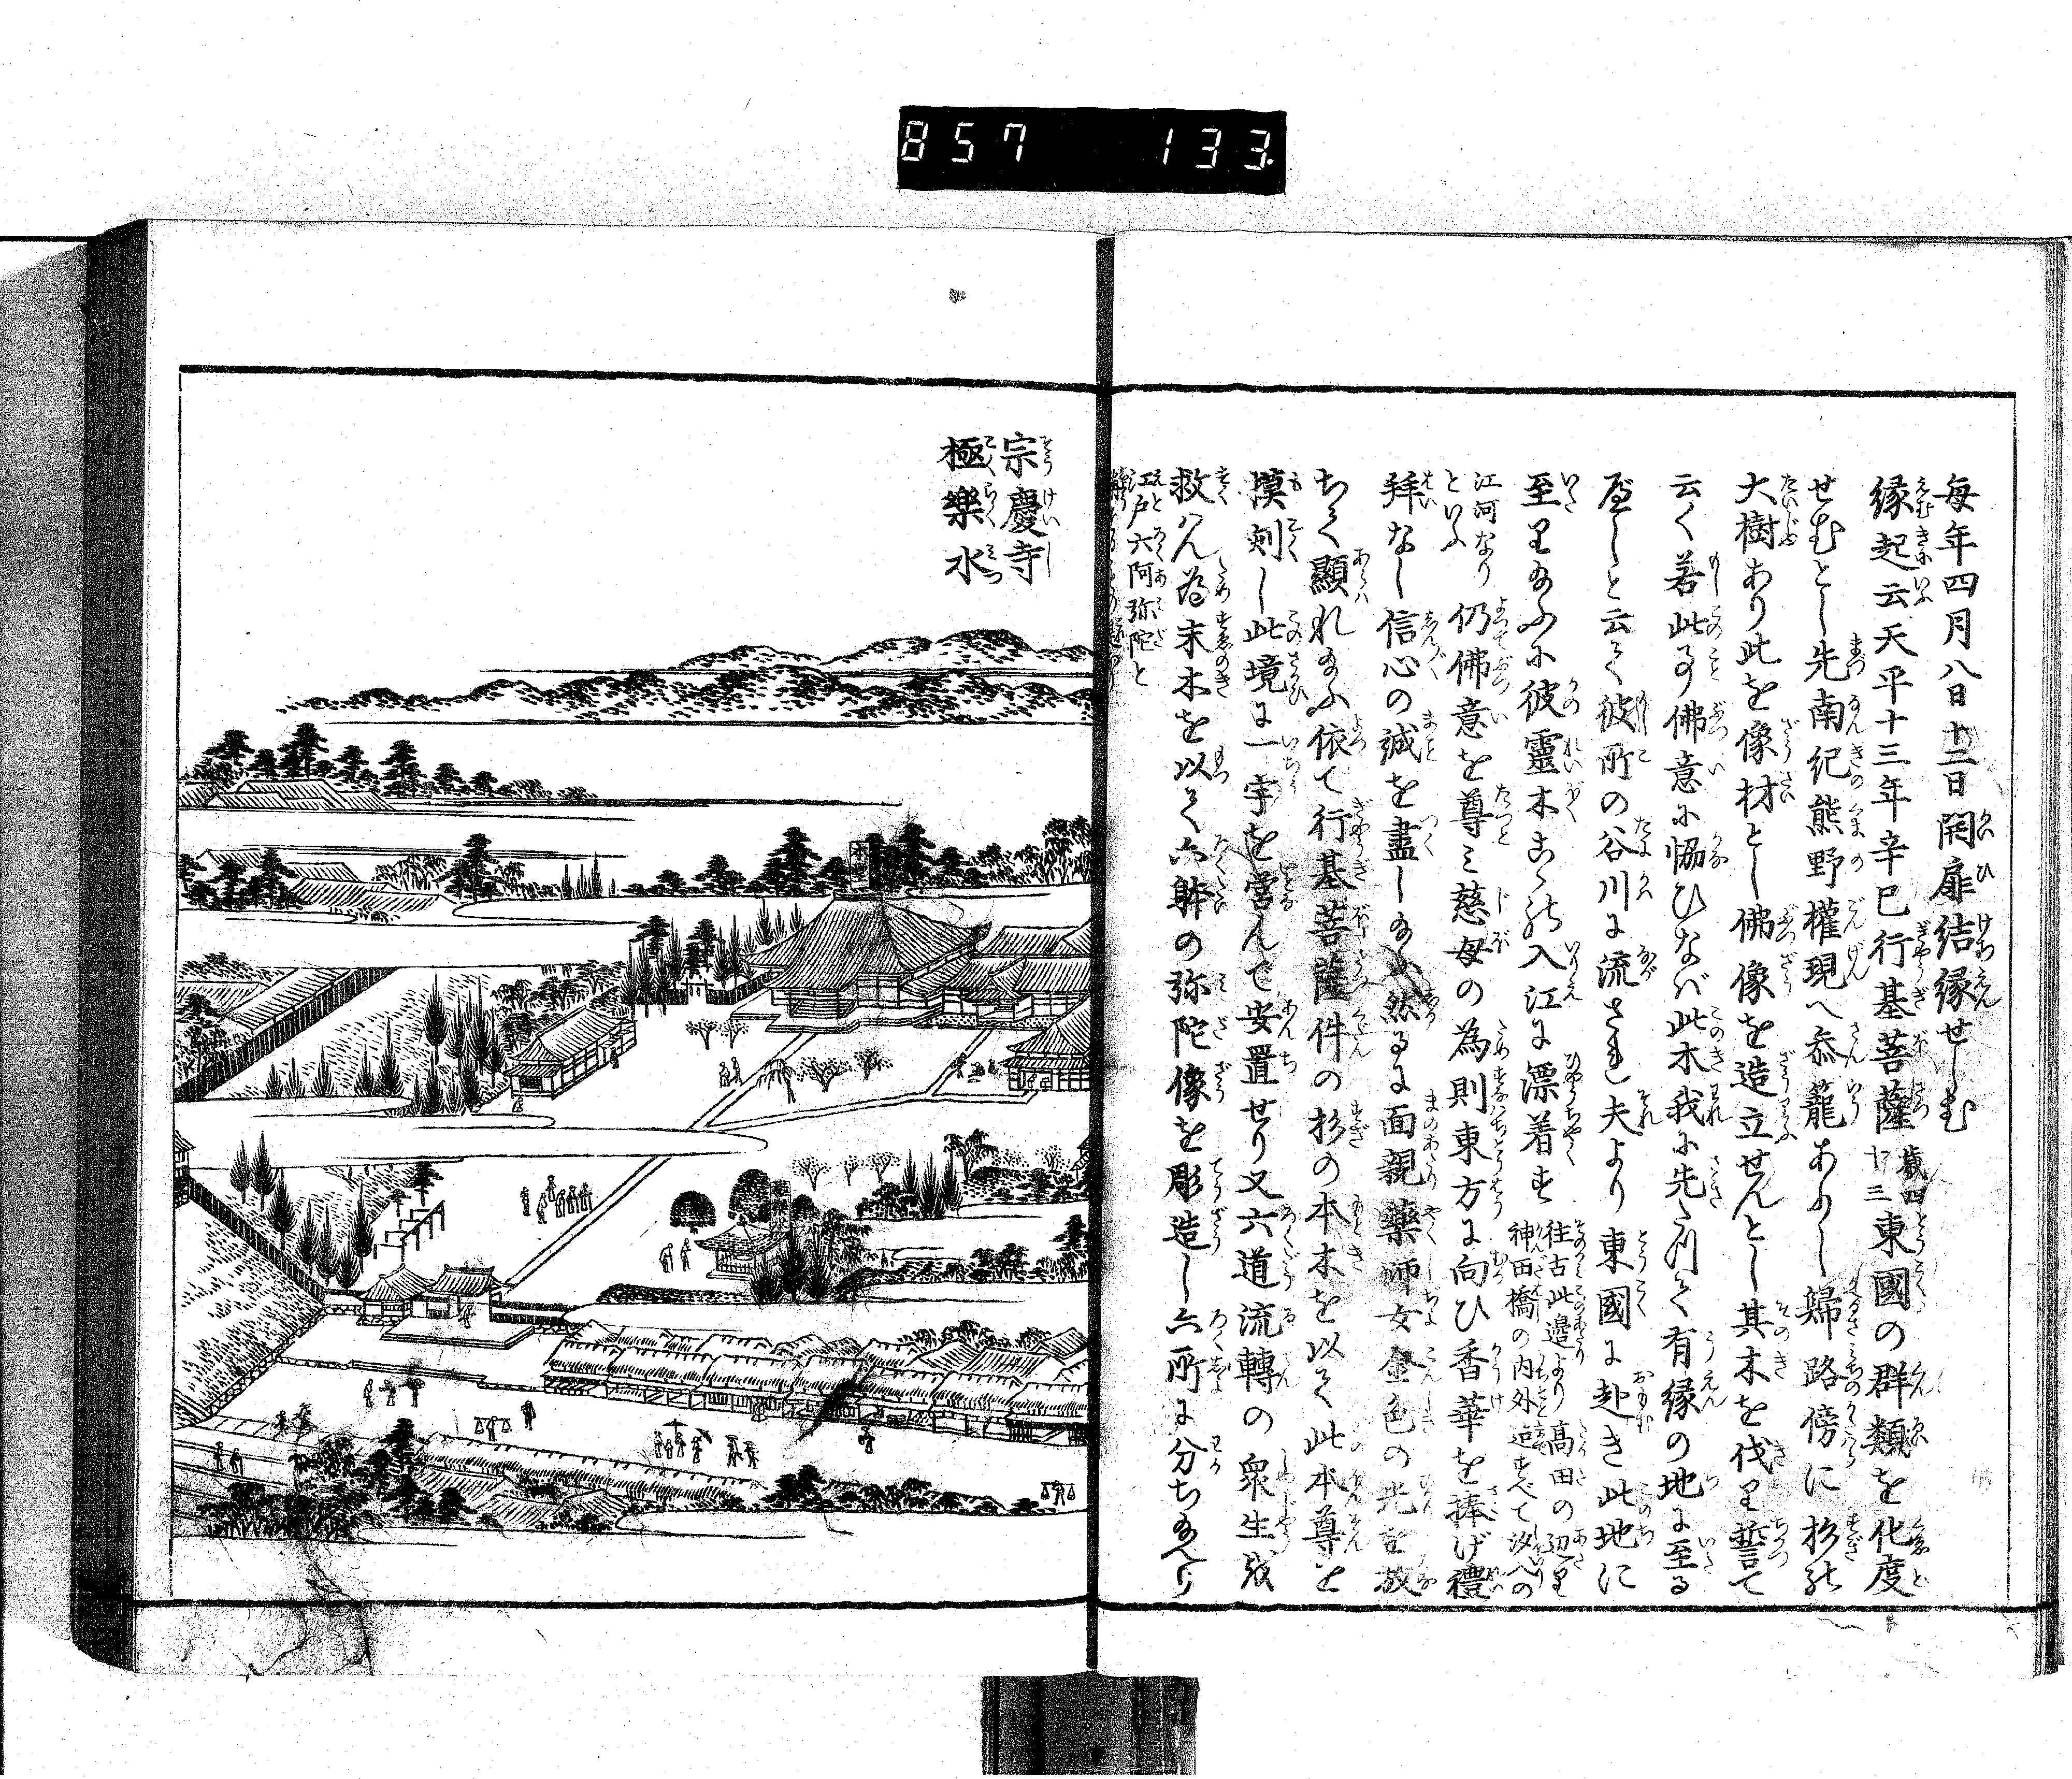 857 133
毎年四月八日十二日開扉結縁せしむ
縁起云天平十三年辛巳行基菩薩歳四十三東國の群類を化度
せむとし先南紀熊野權現へ参籠ありし歸路傍に杉の
大樹あり此を像材とし佛像を造立せんとし其木を伐り誓て
云く若此事佛意に恊ひなば此木我に先さつて有縁の地に至る
べしと云て彼所の谷川に流さる夫より東國に赴き此地に
至り給ふに彼靈木こゝの入江に漂着す往古此邉より髙田の辺まで
神田橋の内外迄すべて汐入の
江河なり
といふ仍佛意を尊み慈母の為則東方に向ひ香華を捧げ禮
拝なし信心の誠を盡し給ふ然るに面親藥師女金色の光を放
ちて顯れ給ふ依て行基菩薩件の杉の本木を以て此本尊を
摸刻し此境に一宇を営んで安置せり又六道流轉の衆生を
救はん為末木を以て六躰の弥陀像を彫造し六所に分ち給へり
江戸六阿弥陀と
宗慶寺
極樂水